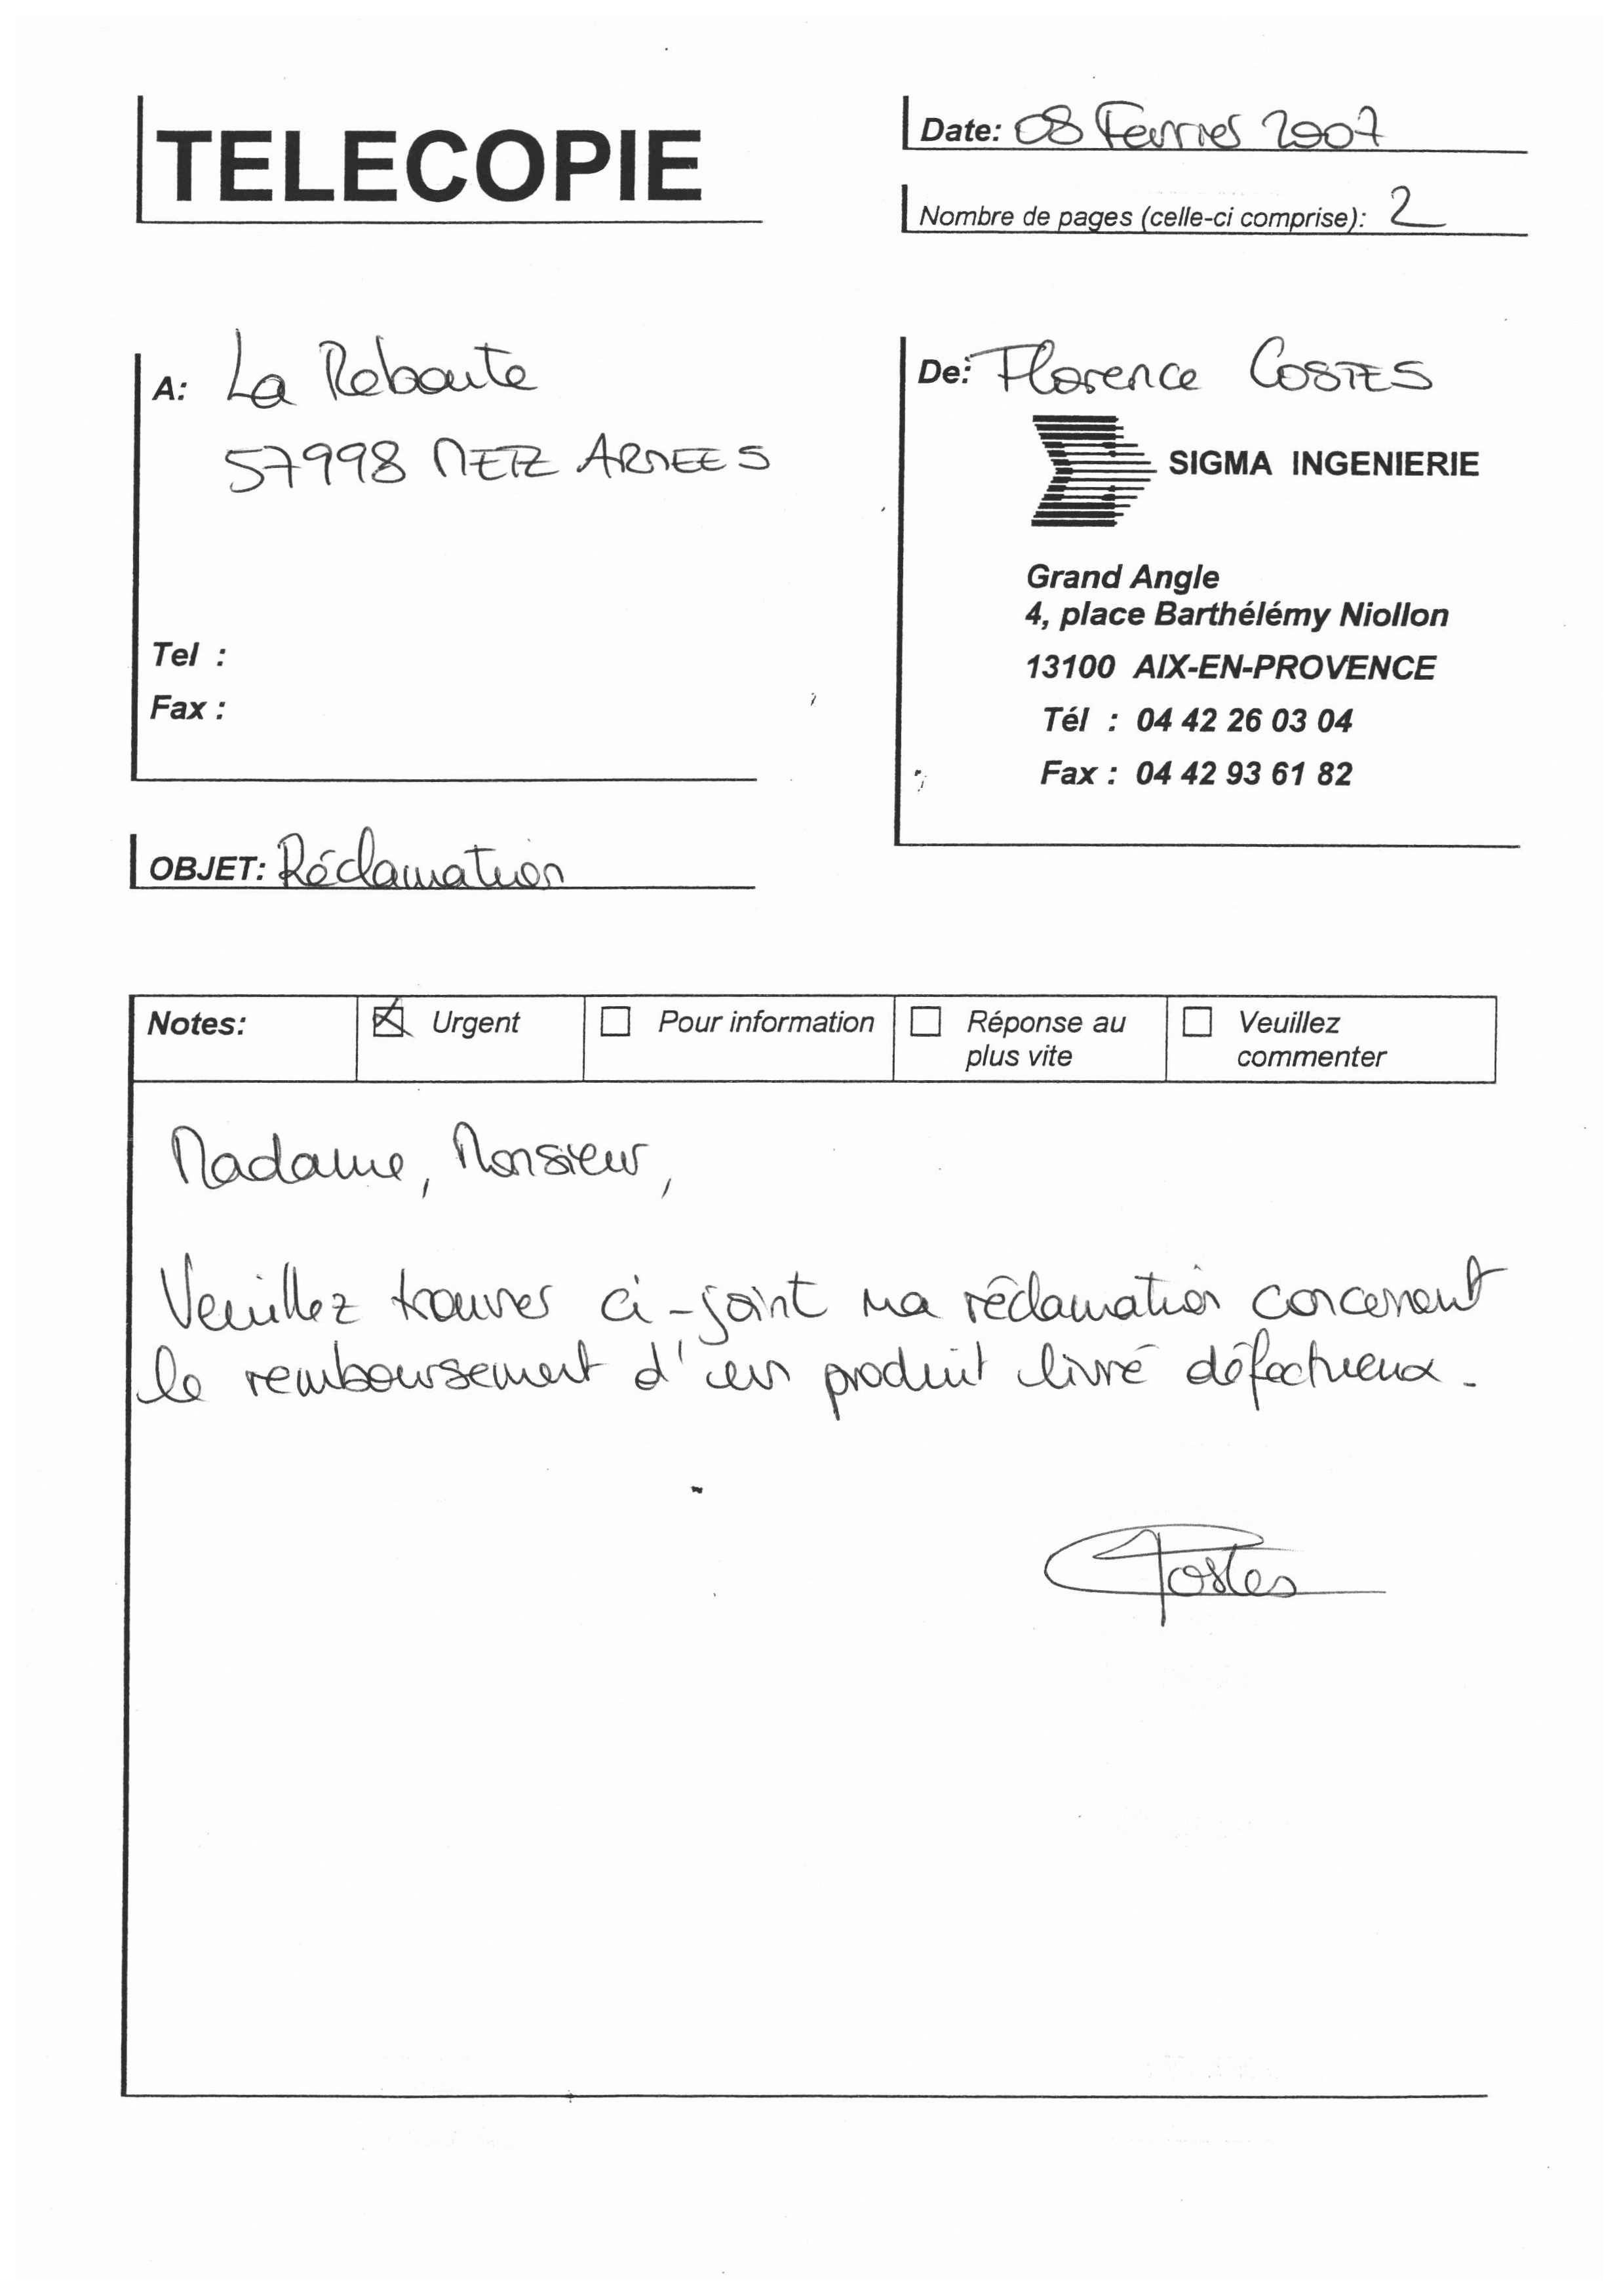 TELECOPIE
Date: 08 Fevrier 2007
Nombre de pages (celle-ci comprise): 2
A: La Reboute
57998 METZ ARMEES
Tel :
Fax :
De: Florence COSTES
SIGMA INGENIERIE
Grand Angle
4, place Barthélémy Niollon
13100 AIX-EN-PROVENCE
Tél : 04 42 26 03 04
Fax : 04 42 93 61 82
OBJET: Réclamation
Notes: Urgent Pour information Réponse au plus vite Veuillez commenter
Madame, Monsieur,
Veuillez trouver ci-joint ma réclamation concernant
le remboursement d'un produit livré défectueux.
Costes